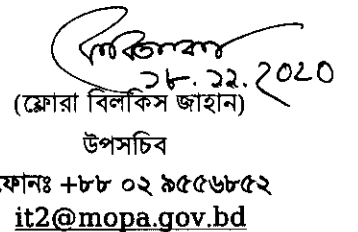 ১৮.১১.2020
(ফ্লোরা বিলকিস জাহান)
উপসচিব
ফোনঃ +৮৮ ০২ ৯৫৫৬৮৫২
it2@mopa.gov.bd